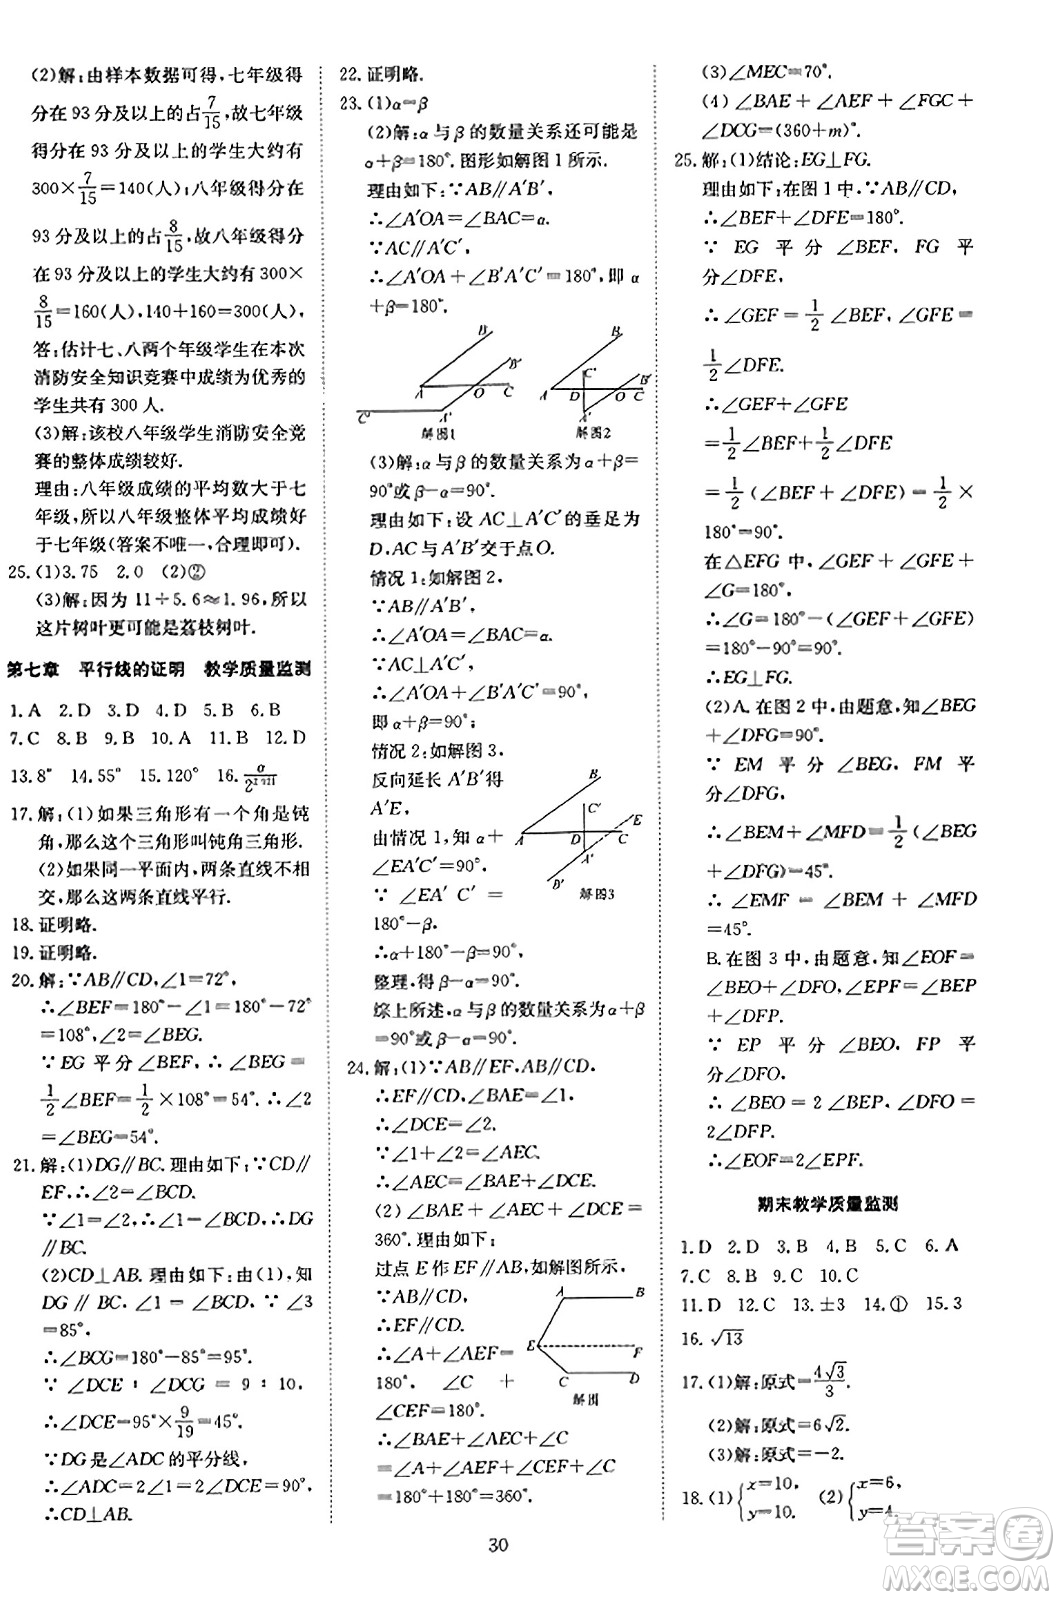 (2)解:由样本数据可得,七年级得
分在93分及以上的占7/15,故七年级
得分在93分及以上的学生大约有
300×7/15=140(人);八年级得分在
93分及以上的占8/15,故八年级得分
在93分及以上的学生大约有300×
8/15=160(人),140+160=300(人).
答:估计七、八两个年级学生在本次
消防安全知识竞赛中成绩为优秀的
学生共有300人.
(3)解:该校八年级学生消防安全竞
赛的整体成绩较好.
理由:八年级成绩的平均数大于七
年级,所以八年级整体平均成绩好
于七年级(答案不唯一,合理即可).
25.(1)3.75 2.0 (2)②
(3)解:因为11÷5.6≈1.96,所以
这片树叶更可能是荔枝树叶.
第七章 平行线的证明 教学质量监测
1.A 2.D 3.D 4.D 5.B 6.B
7.C 8.B 9.B 10.A 11.B 12.D
13.8° 14.55° 15.120° 16.
17.解:(1)如果三角形有一个角是钝
角,那么这个三角形叫钝角三角形.
(2)如果同一平面内,两条直线不相
交,那么这两条直线平行.
18.证明略.
19.证明略.
20.解:∵AB∥CD,∠1=72°,
∴∠BEF=180°-∠1=180°-72°
=108°,∠2=∠BEG.
∵EG平分∠BEF,∴∠BEG=
1/2∠BEF=1/2×108°=54°.∴∠2
=∠BEG=54°.
21.解:(1)DG∥BC.理由如下:∵CD∥
EF,∴∠2=∠BCD.
∵∠1=∠2,∴∠1=∠BCD,∴DG
∥BC.
(2)CD⊥AB.理由如下:由(1),知
DG∥BC,∠1=∠BCD,∵∠3
=85°,
∴∠BCG=180°-85°=95°.
∵∠DCE:∠DCG=9:10,
∴∠DCE=95°×9/19=45°.
∵DG是∠ADC的平分线,
∴∠ADC=2∠CDG=90°,
∴CD⊥AB.
22.证明略.
23.(1)α=β
(2)解:α与β的数量关系还可能是
α+β=180°.图形如解图1所示.
理由如下:∵AB∥A′B′,
∴∠A′OA=∠BAC=α.
∵AC∥A′C′,
∴∠A′OA+∠B′A′C′=180°,即α
+β=180°.
B B′ A O C C′ A′ 解图1
B C′ B′ A D O C A′ 解图2
(3)解:α与β的数量关系为α+β=
90°或β-α=90°.
理由如下:设AC⊥A′C′的垂足为
D,AC与A′B′交于点O.
情况1:如解图2,
∵AB∥A′B′,
∴∠A′OA=∠BAC=α.
∵AC⊥A′C′,
∴∠A′OA+∠B′A′C′=90°,
即α+β=90°;
情况2:如解图3,
反向延长A′B′得
A′E,
由情况1,知α+
∠EA′C′=90°.
∵∠EA′C′=
180°-β,
∴α+180°-β=90°,
整理,得β-α=90°.
综上所述,α与β数量关系为α+β=
90°或β-α=90°.
B C′ E A D C A′ B′ 解图3
24.解:(1)∵AB∥EF,AB∥CD,
∴EF∥CD,∠BAE=∠1,
∴∠DCE=∠2.
∵∠1+∠2=∠AEC,
∴∠AEC=∠BAE+∠DCE.
(2)∠BAE+∠AEC+∠DCE=
360°.理由如下:
过点E作EF∥AB,如解图所示,
∵AB∥CD,
∴EF∥CD.
∴∠BAE+∠AEF=
180°,∠C+
∠CEF=180°.
∴∠BAE+∠AEC+∠DCE
=∠A+∠AEF+∠CEF+∠C
=180°+180°=360°.
A B E F C D 解图
(3)∠MEC=70°.
(4)∠BAE+∠AEF+∠FGC+
∠DCG=(360+m)°.
25.解:(1)结论:EG⊥FG.
理由如下:在图1中,∵AB∥CD,
∴∠BEF+∠DFE=180°.
∵EG平分∠BEF,FG平
分∠DFE,
∴∠GEF=1/2∠BEF,∠GFE=
1/2∠DFE.
∴∠GEF+∠GFE
=1/2∠BEF+1/2∠DFE
=1/2(∠BEF+∠DFE)=1/2×
180°=90°.
在△EFG中,∠GEF+∠GFE+
∠G=180°,
∴∠G=180°-(∠GEF+∠GFE)
=180°-90°=90°,
∴EG⊥FG.
(2)A.在图2中,由题意,知∠BEG
+∠DFG=90°.
∵EM平分∠BEG,FM平
分∠DFG,
∴∠BEM+∠MFD=1/2(∠BEG
+∠DFG)=45°.
∴∠M=∠BEM+∠MFD
=45°.
B.在图3中,由题意,知∠EOF=
∠BEO+∠DFO,∠EPF=∠BEP
+∠DFP.
∵EP平分∠BEO,FP平
分∠DFO.
∴∠BEO=2∠BEP,∠DFO=
2∠DFP.
∴∠EOF=2∠EPF.
期末教学质量监测
1.D 2.D 3.B 4.B 5.C 6.A
7.C 8.B 9.C 10.C
11.D 12.C 13.±3 14.① 15.3
16.√13
17.(1)解:原式=4√3/3.
(2)解:原式=6√2.
(3)解:原式=-2.
18.(1){x=10, y=10. (2){x=6, y=4.
30
答案圈
MXQE.COM